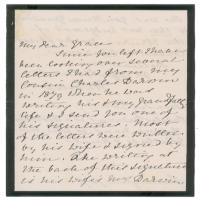 My dear Grace
Since you left I have
been looking over several
letters I had from my
cousin Charles Darwin
in 1879 when he was
writing his & my Grandfather
life & I send you one of
his signatures. Most
of the letters were written
by his wife & signed by
him. The writing at
the back of this signature
is his wife's Mrs Darwin